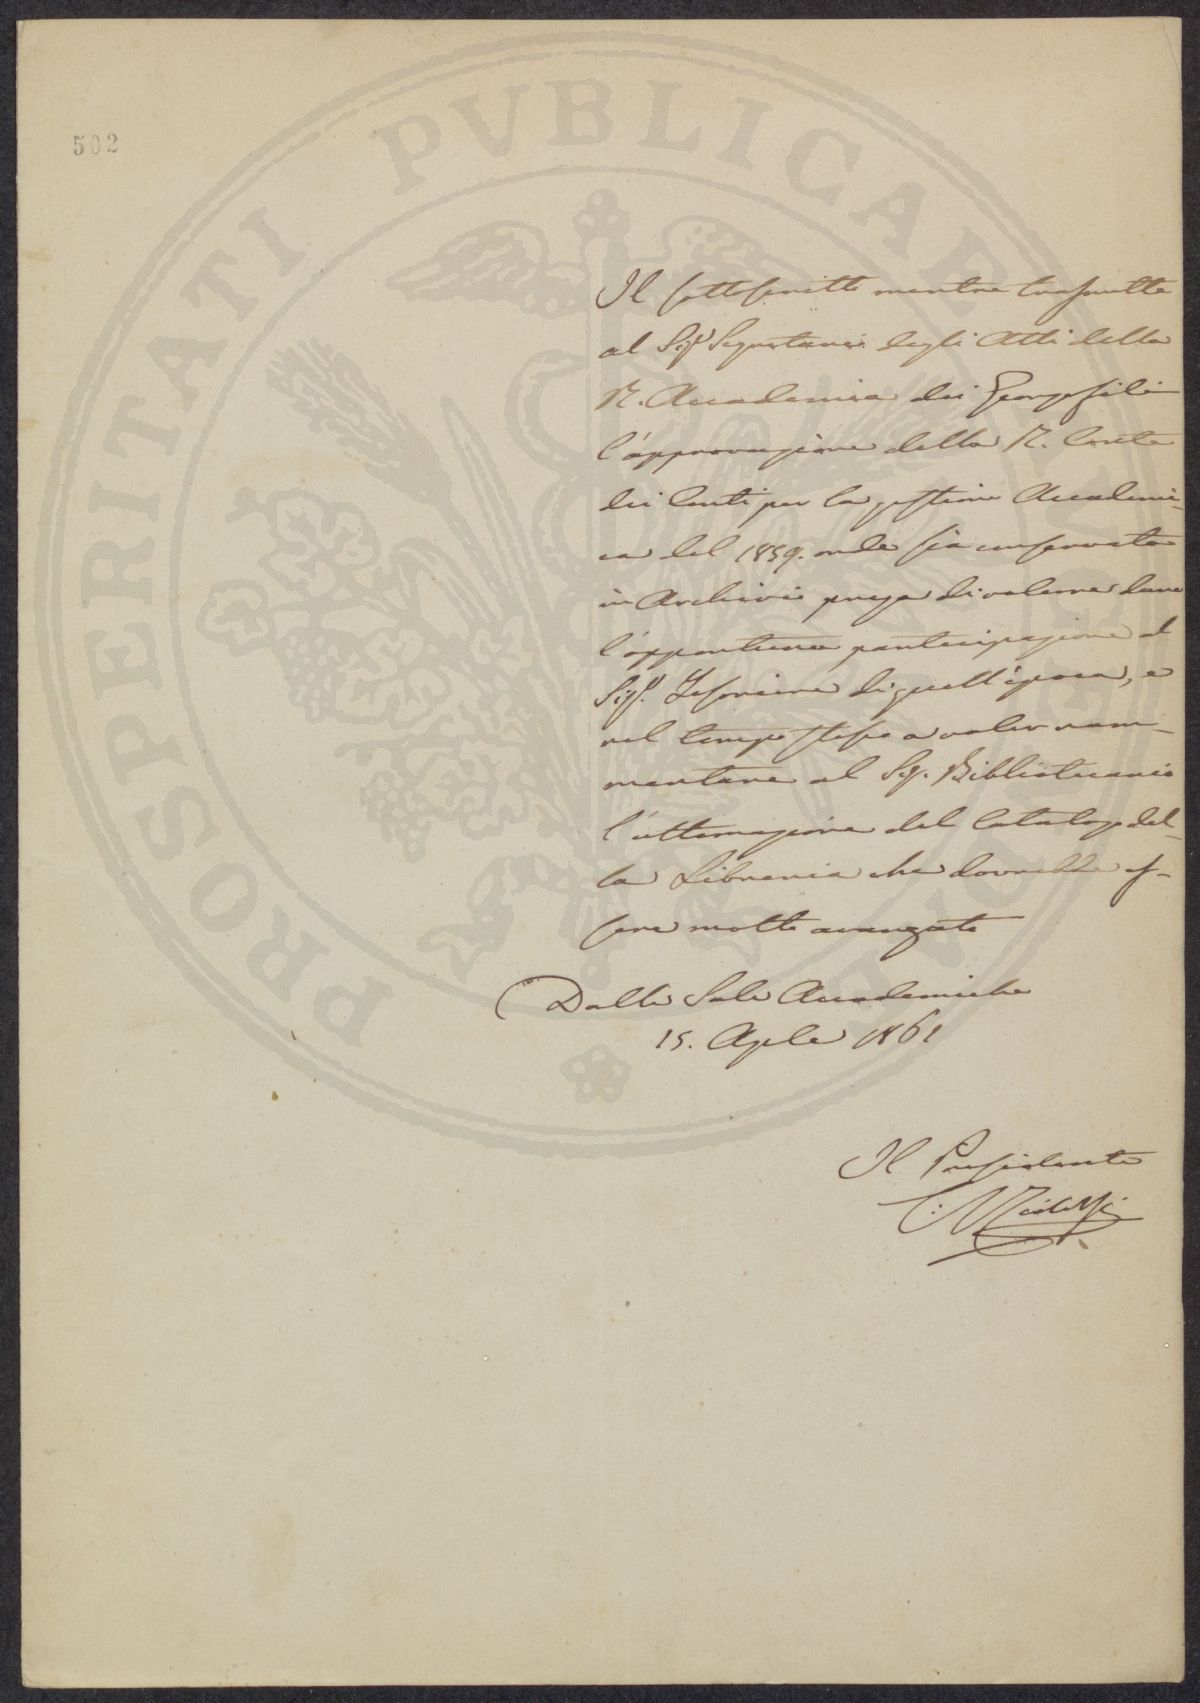 PROSPERITATI PVBLICAE AVGENDAE
502
Il sottoscritto mentre trasmette
al Sigr Segretario degli Atti della
R. Accademia dei Georgofili
l'approvazione della R. Corte
dei Conti per la gestione Accademi-
ca del 1859. onde sia conservata
in Archivio prega di volerne dare
l'opportuna partecipazione al
Sigr. Tesoriere di quell'epoca, e
nel tempo stesso a voler ram-
mentare al Sig. Bibliotecario
l'ultimazione del Catalogo del-
la Libreria che dovrebbe es-
sere molto avanzato
Dalle Sale Accademiche
15. Aprle 1861
Il Presidente
C: Ridolfi